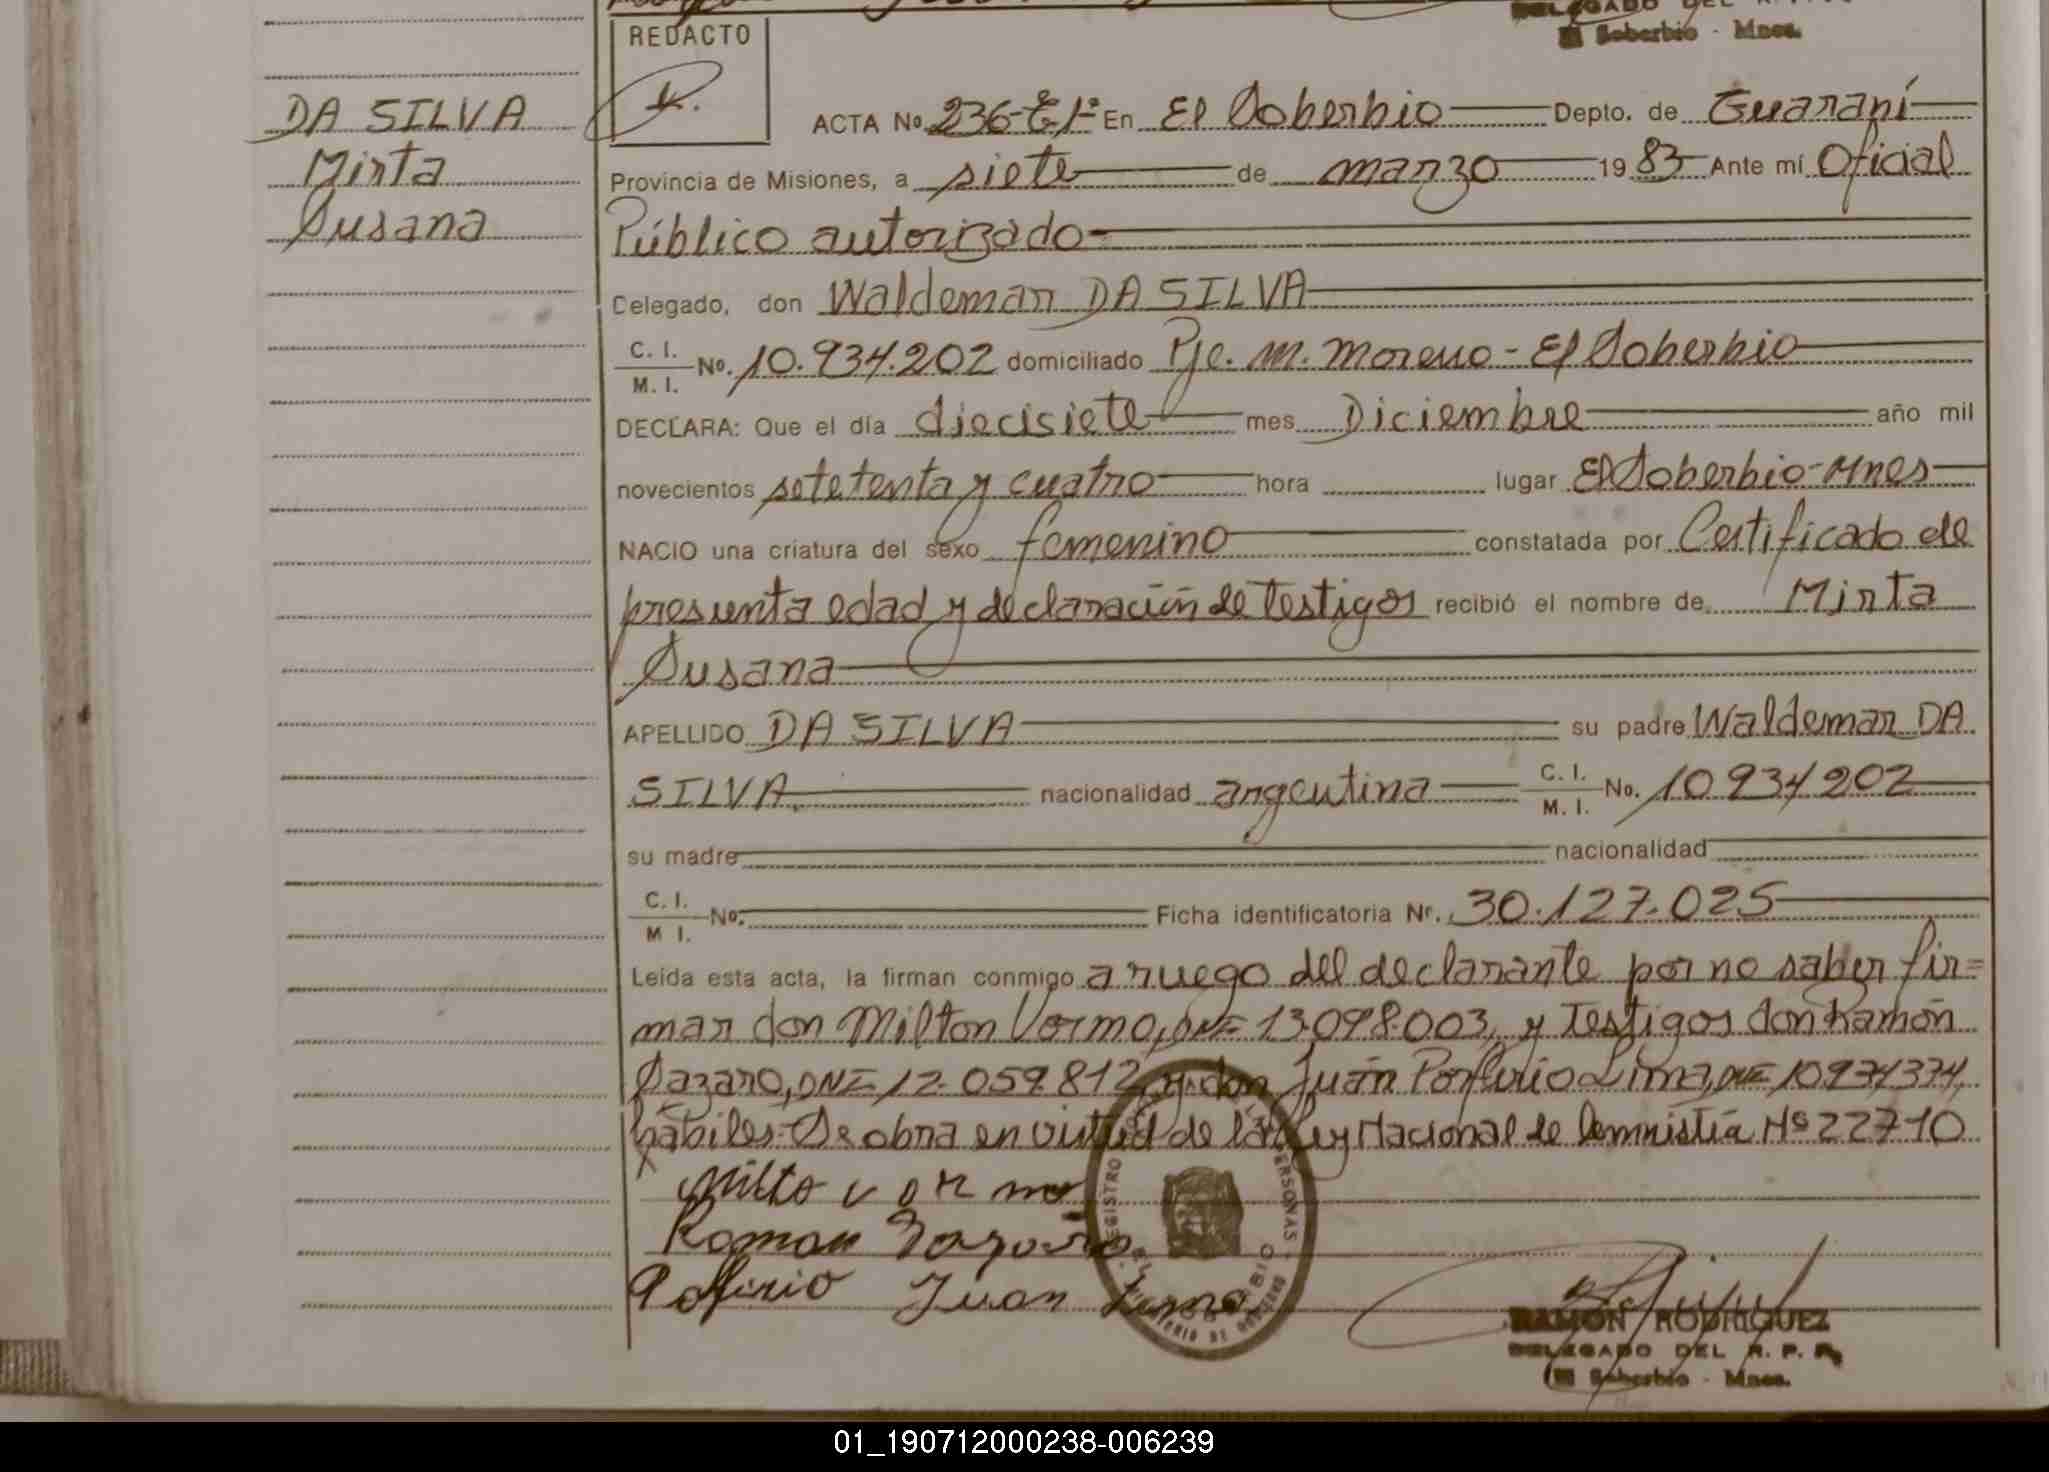 DELEGADO DEL R.
El Soberbio - Mnes.
REDACTO
DA SILVA
Mirta
Susana
ACTA No. 236-E1º En El Soberbio Depto. de Guaraní
Provincia de Misiones, a siete de marzo 1983 Ante mí Oficial
Público autorizado
Delegado, don Waldemar DA SILVA
C. I. M. I. No. 10.934.202 domiciliado Pje. M. Moreno - El Soberbio
DECLARA: Que el día diecisiete mes Diciembre año mil
novecientos setetenta y cuatro hora lugar El Soberbio-Mnes
NACIO una criatura del sexo femenino constatada por Certificado de
presunta edad y declaración de testigos recibió el nombre de Mirta
Susana
APELLIDO DA SILVA su padre Waldemar DA
SILVA. nacionalidad argentina C. I. M. I. No. 10934202
su madre nacionalidad
C. I. M I. No. Ficha identificatoria Nr. 30.127.025
Leída esta acta, la firman conmigo a ruego del declarante por no saber fir=
mar don Milton Vormo, DNI= 13.098.003, y Testigos don Ramón
DNI= 12.059.812, y don Juan Porfirio Lima, DNI= 10974374,
hábiles. Se obra en virtud de la Ley Nacional de Nº 22710
Milto vormo
Roman
Porfirio Juan Lima
REGISTRO PERSONAS
EL SOBERBIO
MINISTERIO DE GOBIERNO
RAMON RODRIGUEZ
DELEGADO DEL R. P. P.
El Soberbio - Mnes.
01_190712000238-006239